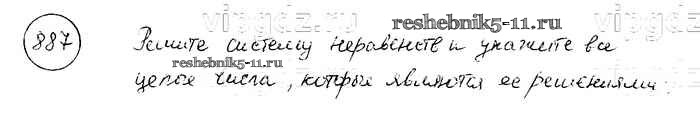 vipgdz.ru
reshebnik5-11.ru
887 Решите систему неравенств и укажите все
reshebnik5-11.ru
целые числа, которые являются ее решениями